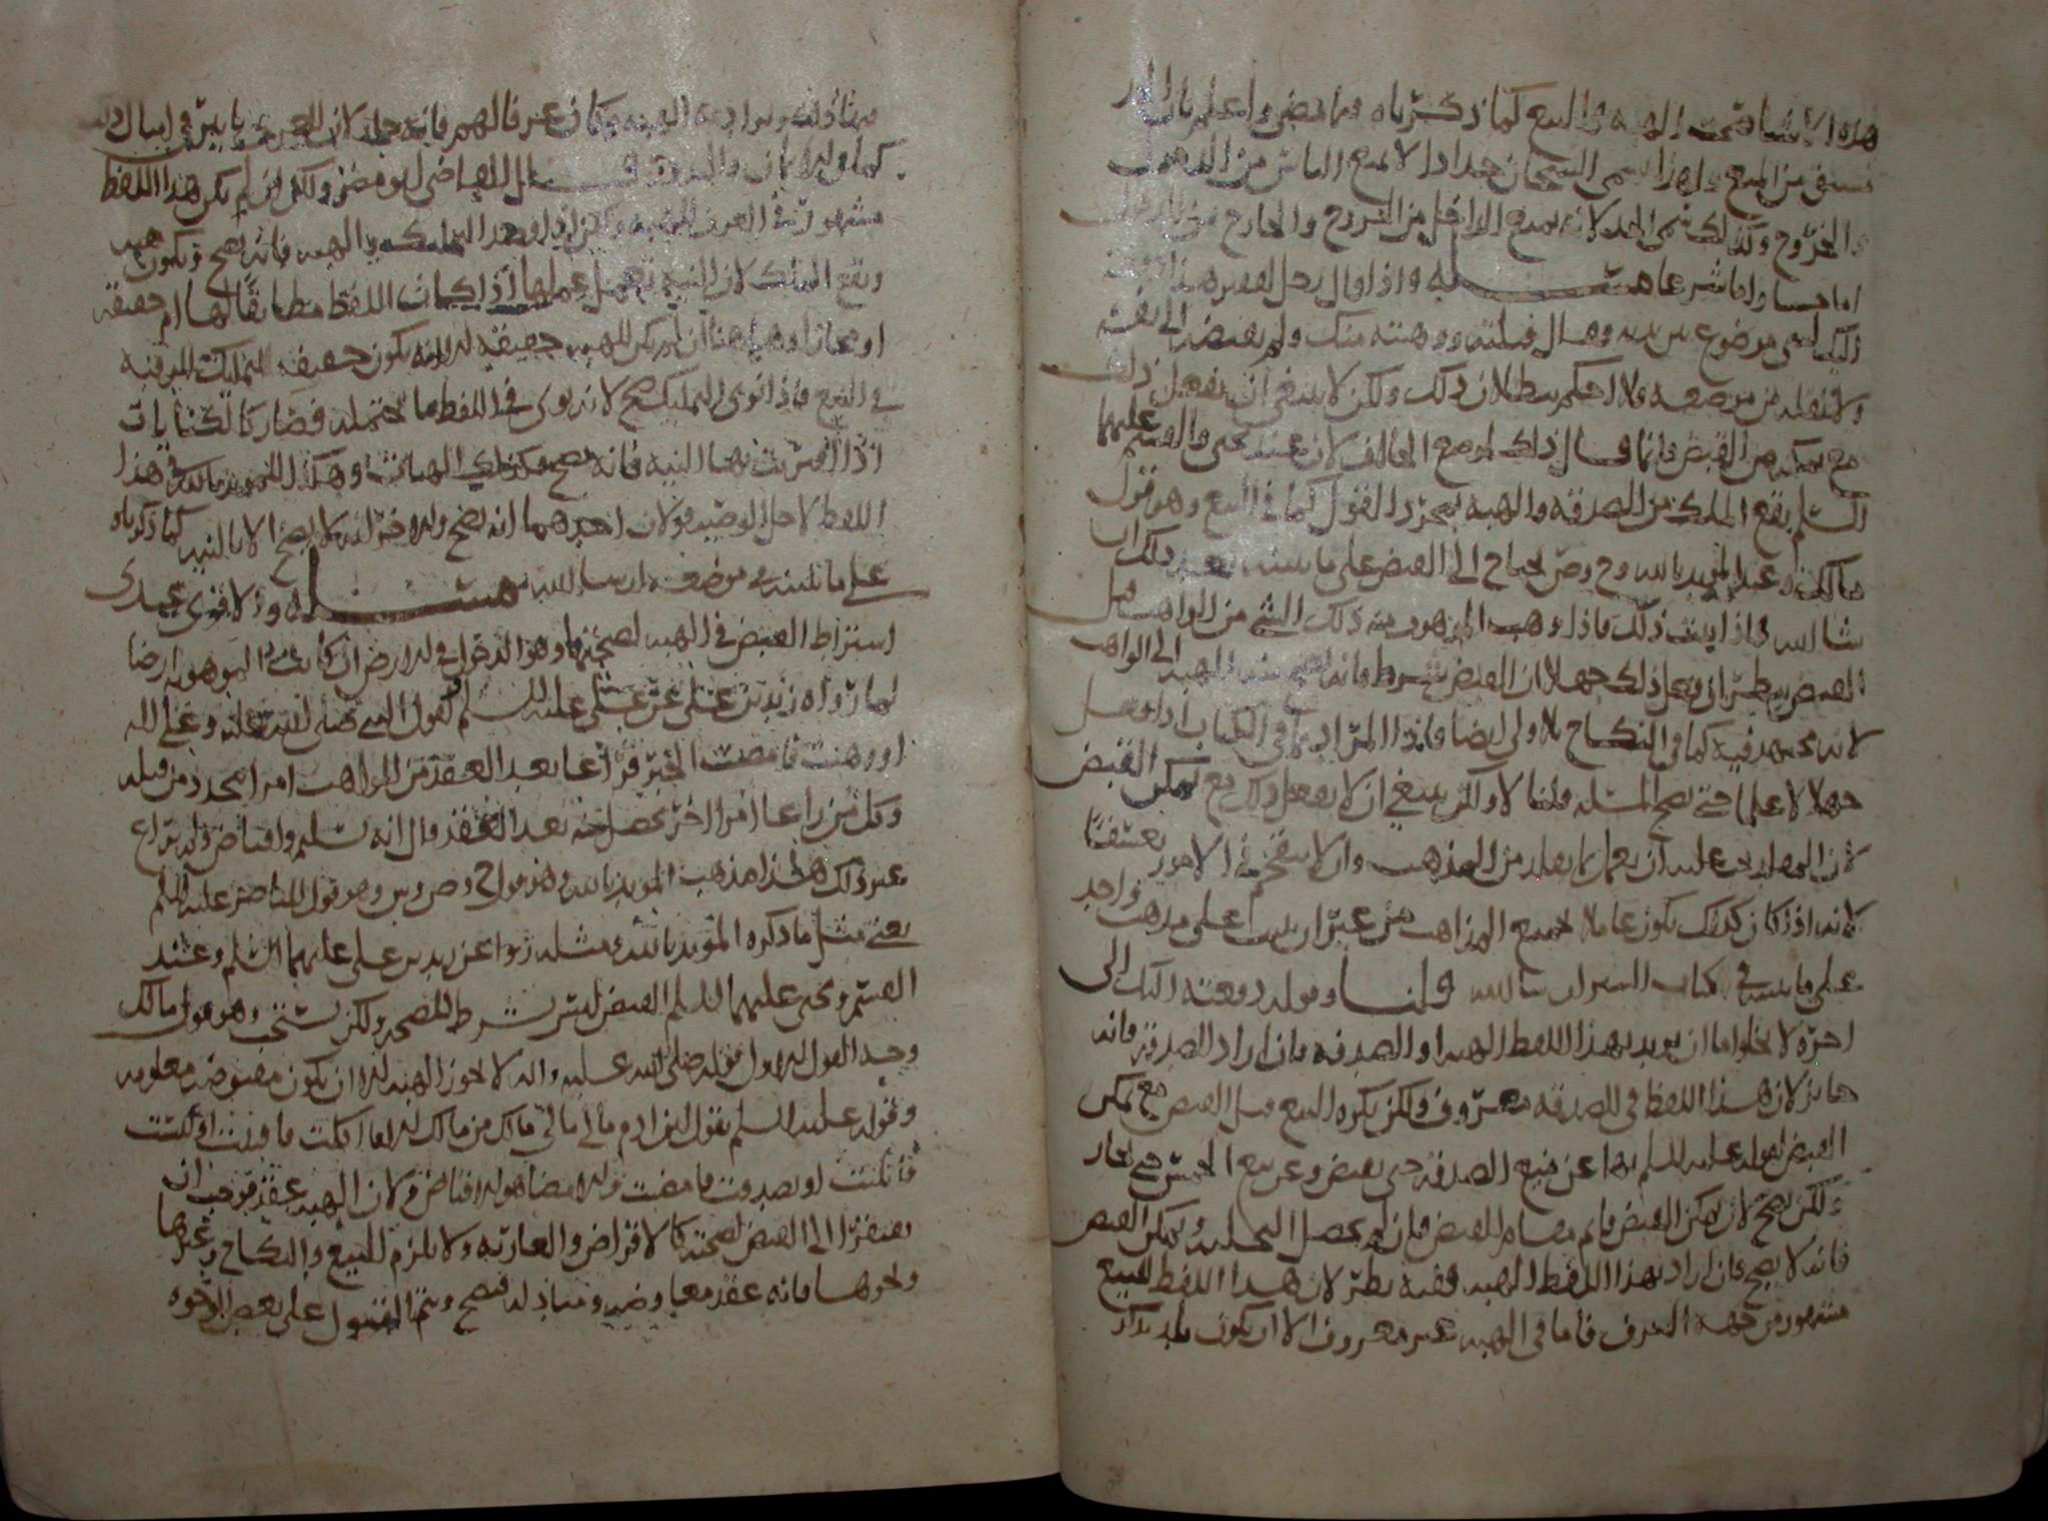 هذه الاشيا صحت الهبه والبيع كما ذكرناه فيما مضى واعلم بان الحد
مشتق من المنع ولهذا سمي السجان حدادا لانه يمنع الناس من الدخول
والخروج وكذلك سمي الحد لانه يمنع الداخل من الخروج والخارج من الدخول
اما حسا واما شرعا مسئله واذا قال رجل لغيره هذا
اليك لشي موضوع بين يديه وقال قبلته ووهبته منك ولم يقبضه
ولا نقله من موضعه فلا احكم ببطلان ذلك ولكن لا ينبغي ان يفعل ذلك
مع تمكنه من القبض وانما قال ذلك لموضع الخالف لان عند يحيى والقسم عليهما
السلم يقع الملك من الصدقه والهبه بمجرد القول كما في البيع وهو قول
مالك وعند المويد بالله وح وص يحتاج الى القبض على ما نبينه بعد ذلك ان
شا الله فاذا ثبت ذلك فاذا وهب الموهوب منه ذلك الشي من الواهب قبل
القبض نظر ان فعل ذلك جهلا ان القبض شرط فانه تصح هذه الهبه الى الواهب
لانه مجتهد فيه كما في النكاح بلا ولي ايضا
جهلا لا علما حتى تصح المسئله قلنا لا ولكن ينبغي ان لا يفعل ذلك مع تمكن القبض
لان المقلد يجب عليه ان يعمل بما يقلد من المذهب وان لا يقتحم في الامور تعسفا
لانه اذا كان كذلك يكون عاملا بجميع المذاهب من غير ان يثبت على مذهب واحد
على ما نبينه في كتاب السير ان شا الله قلنا وقوله دفعته اليك الى
اخره لا يخلوا اما ان يريد بهذا اللفظ الهبه او الصدقه فان اراد الصدقه فانه
جايز لان هذا اللفظ في الصدقه معروف ولكن يكره البيع قبل القبض مع تمكن
القبض لقوله عليه السلم نها عن بيع الصدقه حتى تقبض وعن بيع الخمس حتى يحاز
ولكن تصح لان تمكن القبض قايم مقام القبض فان لم يحصل التخليه وتمكن القبض
فانه لا يصح فان اراد بهذا اللفظ الهبه ففيه نظر لان هذا اللفظ للبيع
مشهور من جهه العرف فاما في الهبه غير معروف الا ان يكون
ويراد به الهبه وكان عرفا لهم فانه جايز لان العرف
كما في الايمان والنذور قال القاضي ابو مضر ولكن ان لم يكن هذا اللفظ
مشهورا في العرف للهبه ولكن اذا قصد التمليك بالهبه فانه يصح وتكون هبه
ويقع الملك لان النيه تعمل عملها اذا كان اللفظ مطابقا لها اما حقيقه
او مجازا وها هنا ان لم يكن للهبه حقيقه لكنه يكون حقيقه لتمليك الرقبه
في البيع فاذا نوى التمليك صح لانه نوى في اللفظ ما يحتمله فصار كالكنايات
اذا اقترنت بها النيه فانه يصح وكذلك الهبات وهكذا المويد بالله في هذا
اللفظ لاجل الوصيه قولان احدهما انه تصح والاخر انه لا يصح الا بالنيه كما ذكرناه
على ما نبينه في موضعه ان شا الله مسئله والاقوى عندي
اشتراط القبض في الهبه لصحتها وهو الدخول في الارض ان كانت الموهوبه ارضا
لما رواه زيد بن علي عن علي عليه السلم لقول النبي صلى الله عليه وعلى اله
او وهبت فامضيت الخبر فراعا بعد العقد من الواهب امرا يتجدد من قبله
وكل من راعا امرا اخر يحصل منه بعد العقد قال انه تسليم واقباض ولم يراع
غير ذلك هذا مذهب المويد بالله وهو قول ح وص وش وهو قول الناصر عليه السلم
يعني مثل ما ذكره المويد بالله ومثله روا عن زيد بن علي عليهما السلم وعند
القسم ويحيى عليهما السلم القبض ليس بشرط للصحه ولكن يستحب وهو قول مالك
وجه القول الاول قوله صلى الله عليه واله لا تجوز الهبه الا ان تكون مقبوضه معلومه
وقوله عليه السلم يقول ابن ادم مالي مالي مالك من مالك الا ما اكلت فافنيت او لبست
فابليت او تصدقت فامضيت والامضا هو الاقباض ولان الهبه عقد فوجب ان
يفتقر الى القبض لصحته كالاقراض والعاريه ولا يلزم البيع والنكاح وغيرها
ونحوهما فانه عقد معاوضه ومبادله فتصح ويتم القبول على بعض الوجوه